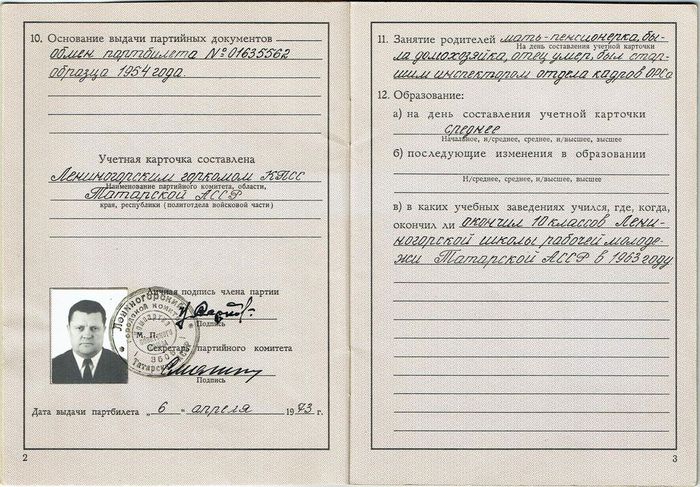 10. Основание выдачи партийных документов
обмен партбилета №01635562
образца 1954 года.
Учетная карточка составлена
Лениногорским горкомом КПСС
Наименование партийного комитета, области,
Татарской АССР
края, республики (политотдела войсковой части)
Личная подпись члена партии
Подпись
М. П.
Секретарь партийного комитета
Подпись
Дата выдачи партбилета „6“ апреля 1973 г.
2
11. Занятие родителей мать-пенсионерка, бы-
На день составления учетной карточки
ла домохозяйка, отец умер, был стар-
шим инспектором отдела кадров ОРСа
12. Образование:
а) на день составления учетной карточки
среднее
Начальное, н/среднее, среднее, н/высшее, высшее
б) последующие изменения в образовании
Н/среднее, среднее, н/высшее, высшее
в) в каких учебных заведениях учился, где, когда,
окончил ли окончил 10 классов Лени-
ногорской школы рабочей молоде-
жи Татарской АССР в 1963 году
3